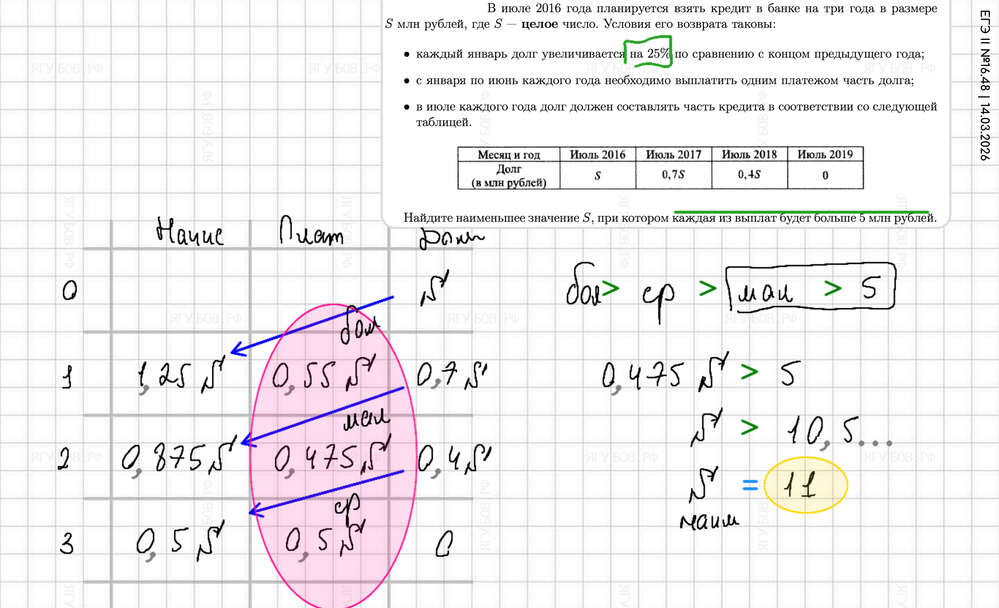 В июле 2016 года планируется взять кредит в банке на три года в размере
S млн рублей, где S — целое число. Условия его возврата таковы:
• каждый январь долг увеличивается на 25% по сравнению с концом предыдущего года;
• с января по июнь каждого года необходимо выплатить одним платежом часть долга;
• в июле каждого года долг должен составлять часть кредита в соответствии со следующей
таблицей.
Месяц и год Июль 2016 Июль 2017 Июль 2018 Июль 2019
Долг
(в млн рублей) S 0,7S 0,4S 0
Найдите наименьшее значение S, при котором каждая из выплат будет больше 5 млн рублей.
ЕГЭ II №16.48 | 14.03.2026
Начис Плат Долг
0 S
бол
1 1,25 S 0,55 S 0,7 S
мал
2 0,875 S 0,475 S 0,4 S
ср
3 0,5 S 0,5 S 0
бол > ср > мал > 5
0,475 S > 5
S > 10,5...
S = 11
наим
ЯГУБОВ.РФ